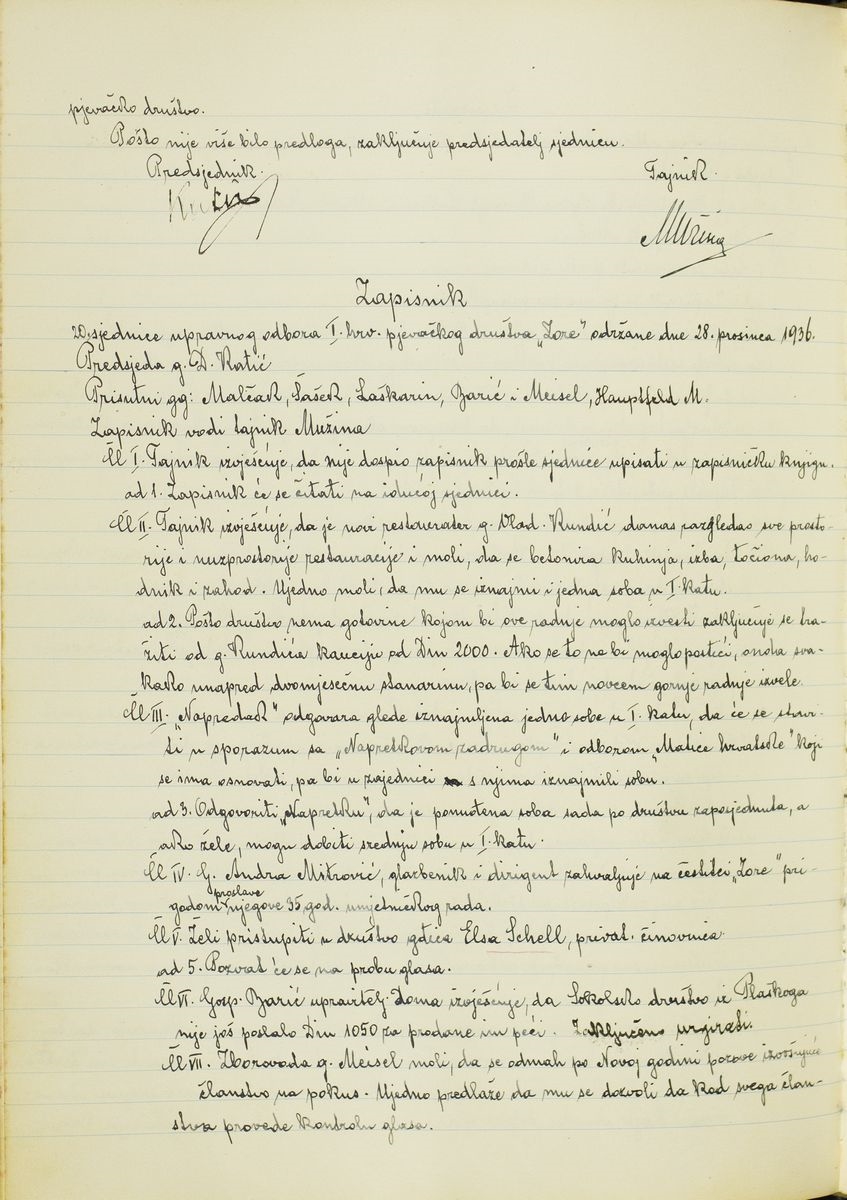 pjevačko društvo.
Pošto nije više bilo predloga, zaključuje predsjedatelj sjednicu.
Predsjednik. Tajnik.
Mužina
Zapisnik
20. sjednice upravnog odbora I. hrv. pjevačkog društva „Zore" održane dne 28. prosinca 1936.
Predsjeda g. D. Katić
Prisutni gg: Malčak, Šašek, Laškarin, Barić i Meisel, Hauptfeld M.
Zapisnik vodi tajnik Mužina
Čl I. Tajnik izvješćuje, da nije dospio zapisnik prošle sjednice upisati u zapisničku knjigu.
ad 1. Zapisnik će se čitati na idućoj sjednici.
Čl II. Tajnik izvješćuje, da je novi restaurater g. Vlad. Kundić danas razgledao sve prosto-
rije i nuzprostorije restauracije i moli, da se betonira kuhinja, izba, točiona, ho-
dnik i zahod. Ujedno moli, da mu se iznajmi i jedna soba u I. katu.
ad 2. Pošto društvo nema gotovine kojom bi ove radnje moglo izvesti zaključuje se tra-
žiti od g. Kundića kauciju od Din 2000. Ako se to ne bi moglo postići, onda sva-
kako unapred dvomjesečnu stanarinu, pa bi se tim novcem gornje radnje izvele.
Čl III. „Napredak" odgovara glede iznajmljena jedne sobe u I. katu, da će se stavi-
ti u sporazum sa „Napretkovom zadrugom" i odborom „Matice hrvatske" koji
se ima osnovati, pa bi u zajednici s njima iznajmili sobu.
ad 3. Odgovoriti „Napretku", da je pomenena soba sada po društvu zaposjednuta, a
ako žele, mogu dobiti srednju sobu u I. katu.
Čl IV. G. Andra Mitrović, glazbenik i dirigent zahvaljuje na čestitci „Zore" pri-
godom proslave njegove 35 god. umjetničkog rada.
Čl V. Želi pristupiti u društvo gđica Elsa Schell, privat. činovnica
ad 5. Pozvat će se na probu glasa.
Čl VI. Gosp. Barić upravitelj Doma izvješćuje, da Sokolsko društvo iz Plaškoga
nije još poslalo Din 1050 za prodane im peći. Zaključeno urgirati.
Čl VII. Zborovođa g. Meisel moli, da se odmah po Novoj godini pozove izvršujuće
članstvo na pokus. Ujedno predlaže da mu se dozvoli da kod svega član-
stva provede kontrolu glasa.